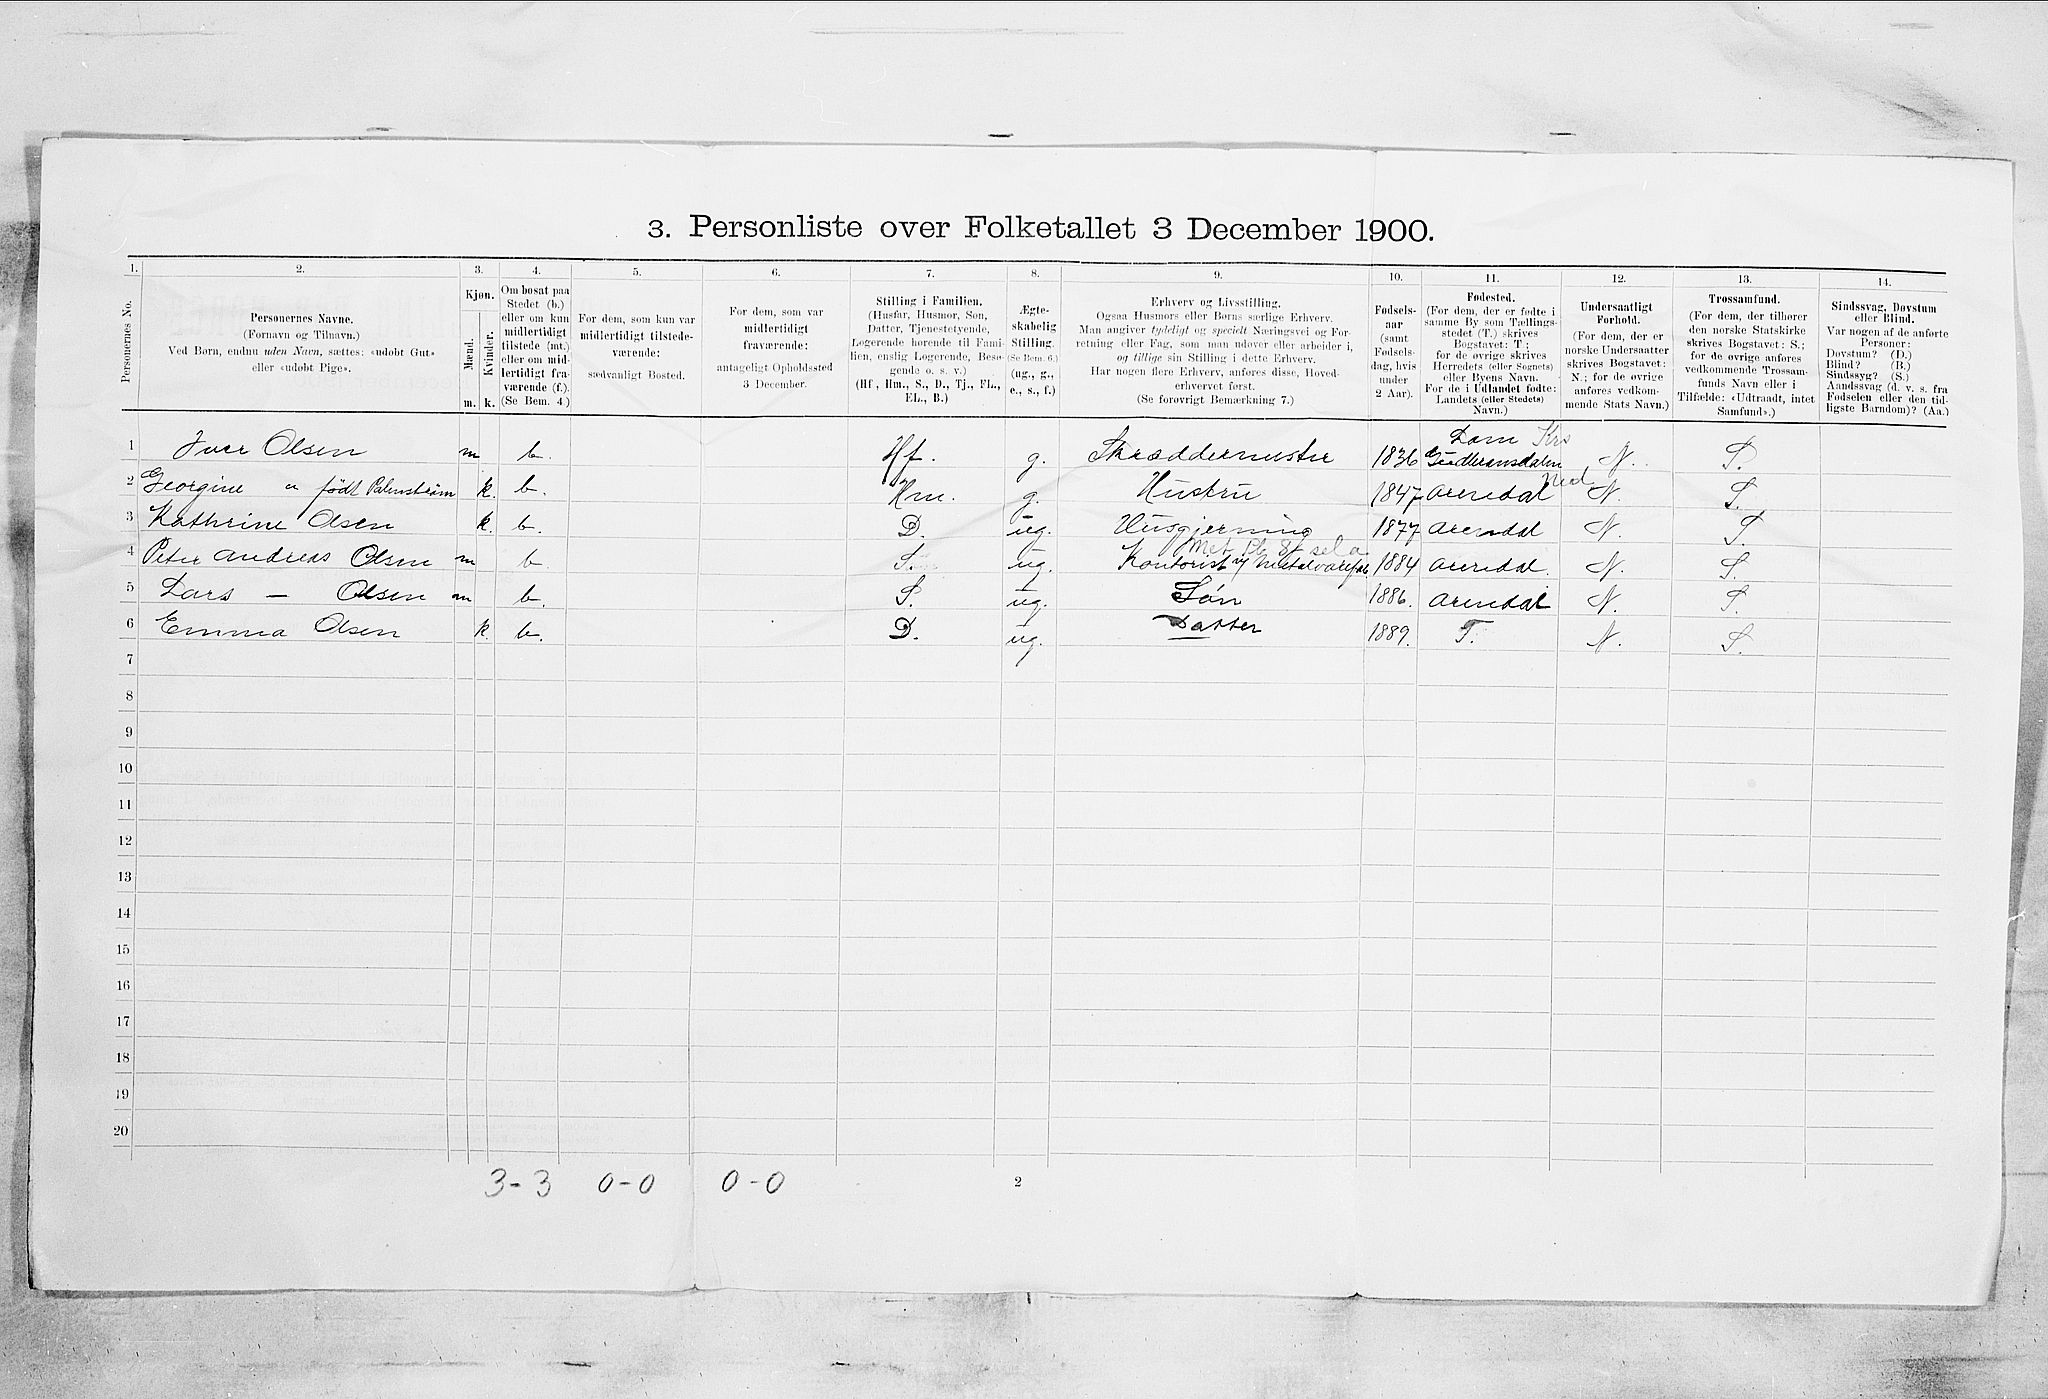 3. Personliste over Folketallet 3 December 1900.
1. 2. 3. 4. 5. 6. 7. 8. 9. 10. 11. 12. 13. 14.
Personernes No.
Personernes Navne.
(Fornavn og Tilnavn.)
Ved Børn, endnu uden Navn, sættes: «udøbt Gut»
eller «udøbt Pige».
Kjøn.
Mænd.
Kvinder.
m. k.
Om bosat paa
Stedet (b.)
eller om kun
midlertidigt
tilstede (mt.)
eller om mid-
lertidigt fra-
værende (f.).
(Se Bem. 4.)
For dem, som kun var
midlertidigt tilstede-
værende:
sædvanligt Bosted.
For dem, som var
midlertidigt
fraværende:
antageligt Opholdssted
3 December.
Stilling i Familien.
(Husfar, Husmor, Søn,
Datter, Tjenestetyende,
Logerende hørende til Fami-
lien, enslig Logerende, Besø-
gende o. s. v.)
(Hf., Hm., S., D., Tj., FL.,
EL., B.)
Ægte-
skabelig
Stilling.
(Se Bem. 6.)
(ug., g.,
e., s., f.)
Erhverv og Livsstilling.
Ogsaa Husmors eller Børns særlige Erhverv.
Man angiver tydeligt og specielt Næringsvei og For-
retning eller Fag, som man udøver eller arbeider i,
og tillige sin Stilling i dette Erhverv.
Har nogen flere Erhverv, anføres disse, Hoved-
erhvervet først.
(Se forøvrigt Bemærkning 7.)
Fødsels-
aar
(samt
Fødsels-
dag, hvis
under
2 Aar).
Fødested.
(For dem, der er fødte i
samme By som Tællings-
stedet (T.) skrives
Bogstavet: T;
for de øvrige skrives
Herredets (eller Sognets)
eller Byens Navn.
For de i Udlandet fødte:
Landets (eller Stedets)
Navn.)
Undersaatligt
Forhold.
(For dem, der er
norske Undersaatter
skrives Bogstavet:
N.; for de øvrige
anføres vedkom-
mende Stats Navn.)
Trossamfund.
(For dem, der tilhører
den norske Statskirke
skrives Bogstavet: S.;
for de øvrige anføres
vedkommende Trossam-
funds Navn eller i
Tilfælde: «Udtraadt, intet
Samfund».)
Sindssvag, Døvstum
eller Blind.
Var nogen af de anførte
Personer:
Døvstum? (D.)
Blind? (B.)
Sindssyg? (S.)
Aandssvag (d. v. s. fra
Fødselen eller den tid-
ligste Barndom)? (Aa.)
Lom Krs
1 Iver Olsen m b. Hf. g. Skræddermester 1836 Gudbransdalen N. S.
Ned
2 Georgine " født Palmstrøm k. b. Hm. g. Hustru 1847 Arendal N. S.
3 Kathrine Olsen k. b. D. ug. Husgjerning 1877 Arendal N. S.
4 Peter Andreas Olsen m b. S. ug. Kontorist v/ Metalvarefab. 1884 Arendal. N. S.
5 Lars - Olsen m b. S. ug. Søn 1886. Arendal N. S.
6 Emma Olsen k. b. D. ug. Datter 1889. T. N. S.
7
8
9
10
11
12
13
14
15
16
17
18
19
20
3-3 0-0 0-0
2